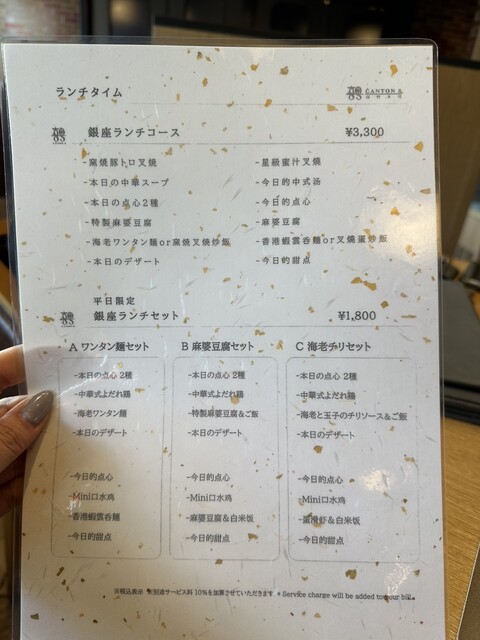 ランチタイム
CANTON &
銀座ランチコース ¥3,300
-窯焼豚トロ叉焼 -星級蜜汁叉焼
-本日の中華スープ -今日的中式汤
-本日の点心2種 -今日的点心
-特製麻婆豆腐 -麻婆豆腐
-海老ワンタン麺or窯焼叉焼炒飯 -香港蝦雲呑麵or叉焼蛋炒飯
-本日のデザート -今日的甜点
平日限定
銀座ランチセット ¥1,800
A ワンタン麺セット
-本日の点心 2種
-中華式よだれ鶏
-海老ワンタン麺
-本日のデザート
-今日的点心
-Mini口水鸡
-香港蝦雲呑麵
-今日的甜点
B 麻婆豆腐セット
-本日の点心 2種
-中華式よだれ鶏
-特製麻婆豆腐&ご飯
-本日のデザート
-今日的点心
-Mini口水鸡
-麻婆豆腐&白米饭
-今日的甜点
C 海老チリセット
-本日の点心 2種
-中華式よだれ鶏
-海老と玉子のチリソース&ご飯
-本日のデザート
-今日的点心
-Mini口水鸡
-蛋滑虾&白米饭
-今日的甜点
※税込表示 ※別途サービス料 10%を加算させていただきます * Service charge will be added to your bill.